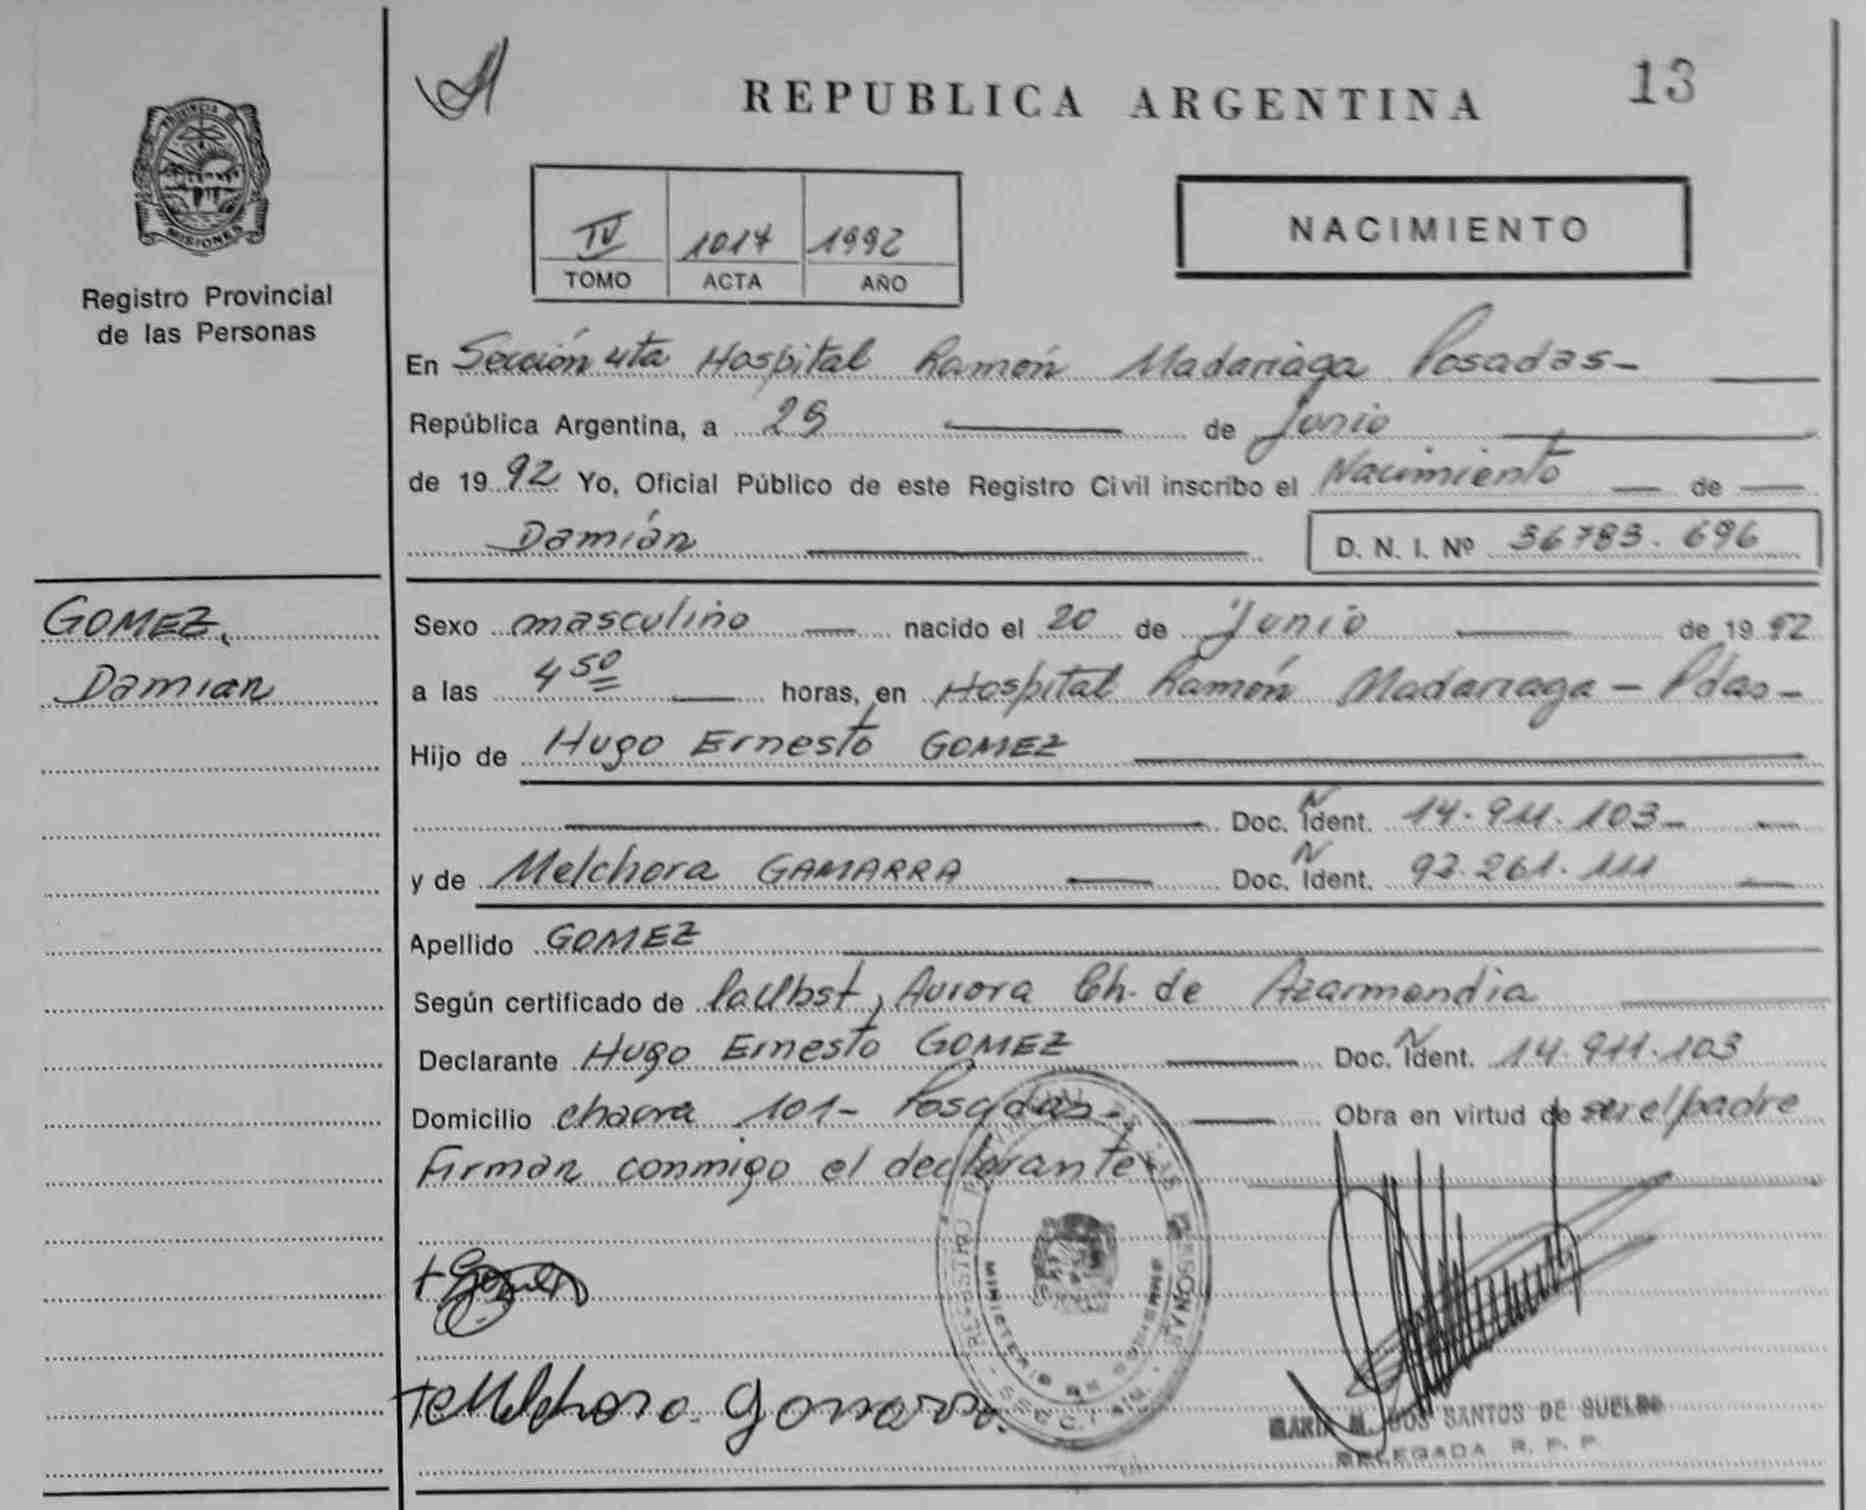 13
REPUBLICA ARGENTINA
PROVINCIA DE
MISIONES
Registro Provincial
de las Personas
IV 1017 1992
TOMO ACTA AÑO
NACIMIENTO
En Sección 4ta Hospital Ramón Madariaga Posadas-
República Argentina, a 25 de Junio
de 1992 Yo, Oficial Público de este Registro Civil inscribo el Nacimiento de
Damián D. N. I. Nº 36783.696
GOMEZ,
Damian
Sexo masculino nacido el 20 de Junio de 1992
a las 4 50 horas, en Hospital Ramón Madariaga - Pdas-
Hijo de Hugo Ernesto GOMEZ
Doc. N Ident. 14.911.103-
y de Melchora GAMARRA Doc. N Ident. 92.261.111
Apellido GOMEZ
Según certificado de Aurora Ch. de Azarmendia
Declarante Hugo Ernesto GOMEZ Doc. N Ident. 14.911.103
Domicilio chacra 101- Posadas- Obra en virtud de ser el padre
Firman conmigo el declarante
Gomez
Melchora Gamarra.
MARIA M. DOS SANTOS DE SUELDO
DELEGADA R. P. P.